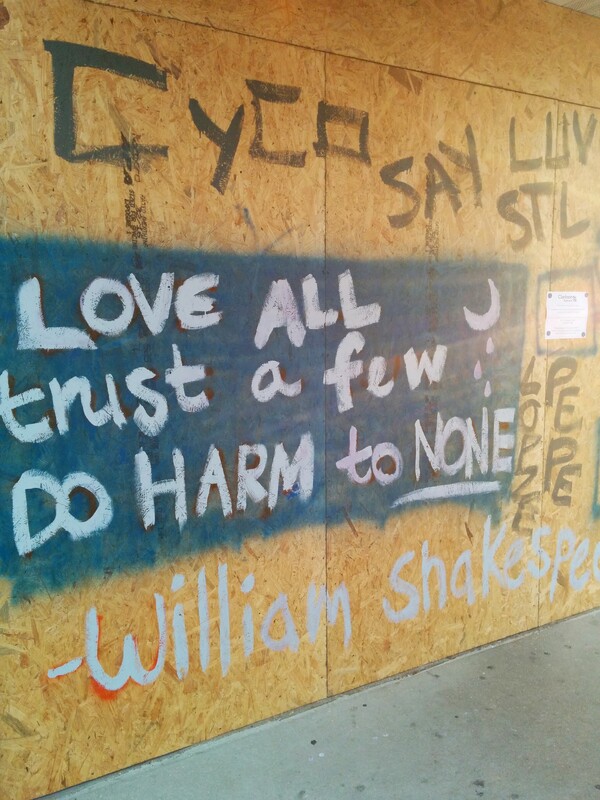 CYCO
SAY LUV
STL
LOVE ALL
trust a few
DO HARM to NONE
LOPZE
PEPPE
-William Shakespea